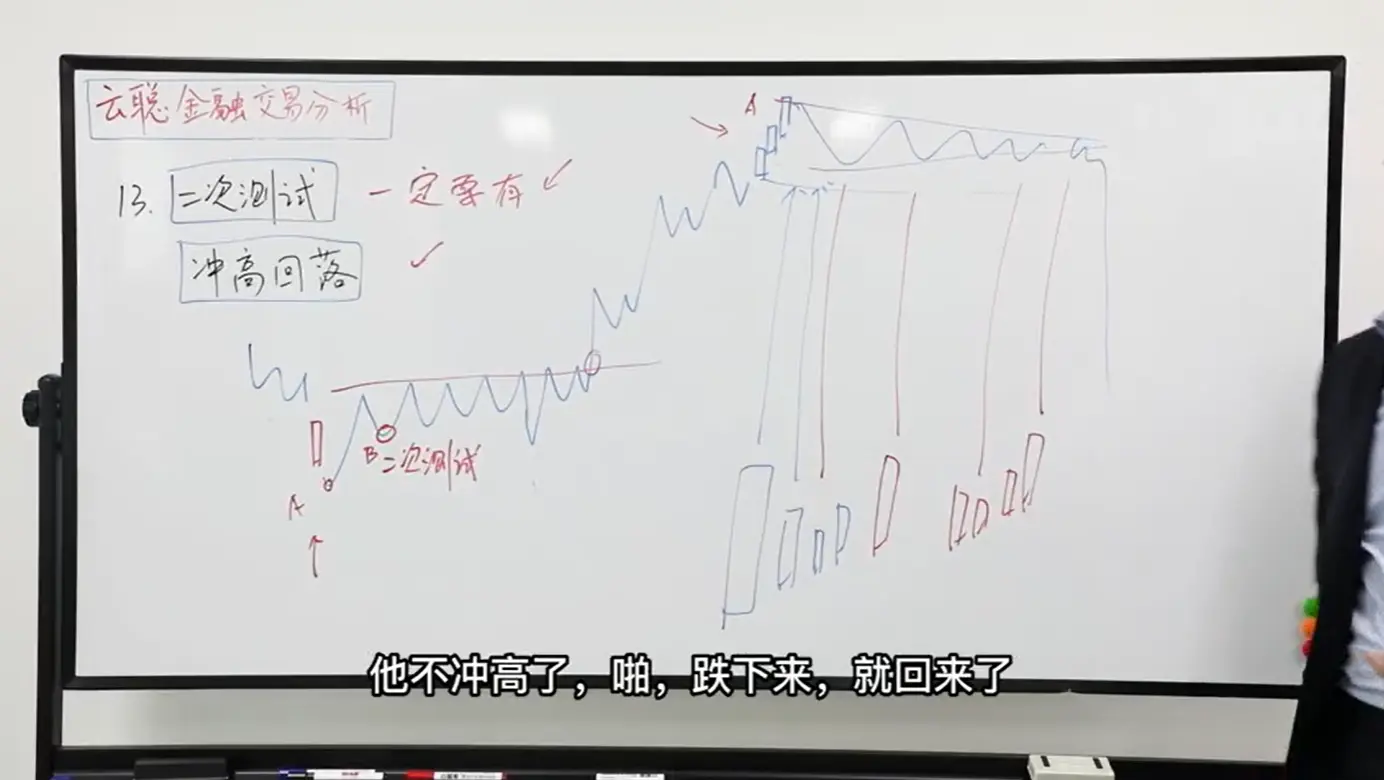 云聪金融交易分析
13. 二次测试 一定要有 ✓
冲高回落 ✓
A
B 二次测试
A
他不冲高了，啪，跌下来，就回来了